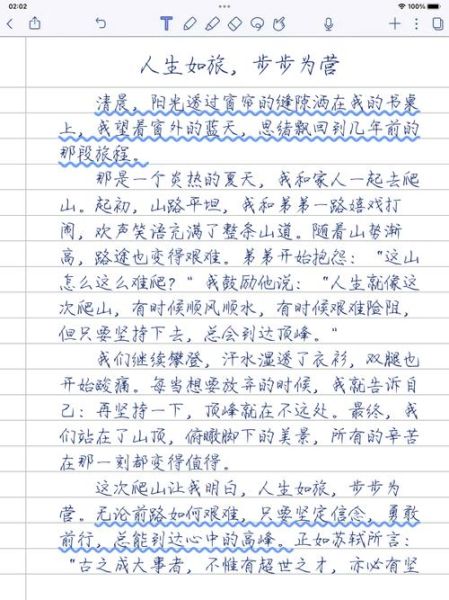 02:02
100%
人生如旅，步步为营
清晨，阳光透过窗帘的缝隙洒在我的书桌
上，我望着窗外的蓝天，思绪飘回到几年前的
那段旅程。
那是一个炎热的夏天，我和家人一起去爬
山。起初，山路平坦，我和弟弟一路嬉戏打
闹，欢声笑语充满了整条山道。随着山势渐
高，路途也变得艰难。弟弟开始抱怨：“这山
怎么这么难爬？”我鼓励他说：“人生就像这
次爬山，有时候顺风顺水，有时候艰难险阻，
但只要坚持下去，总会到达顶峰。"
我们继续攀登，汗水湿透了衣衫，双腿也
开始酸痛。每当想要放弃的时候，我就告诉自
己：再坚持一下，顶峰就在不远处。最终，我
们站在了山顶，俯瞰脚下的美景，所有的辛苦
在那一刻都变得值得。
这次爬山让我明白，人生如旅，步步为
营。无论前路如何艰难，只要坚定信念，勇敢
前行，总能到达心中的高峰。正如苏轼所言：
“古之成大事者，不惟有超世之才，亦必有坚